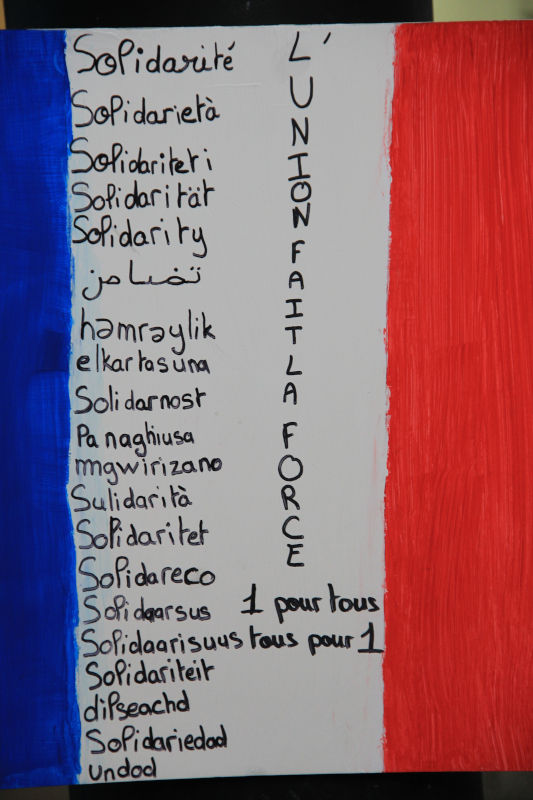 Solidarité
Solidarietà
Solidariteti
Solidarität
Solidarity
تضامن
həmrəylik
elkartasuna
Solidarnost
Panaghiusa
mgwirizano
Sulidarità
Solidaritet
Solidareco
Solidaarsus
Solidaarisuus
Solidariteit
dilseachd
Solidariedad
undod
L'UNION FAIT LA FORCE
1 pour tous
tous pour 1